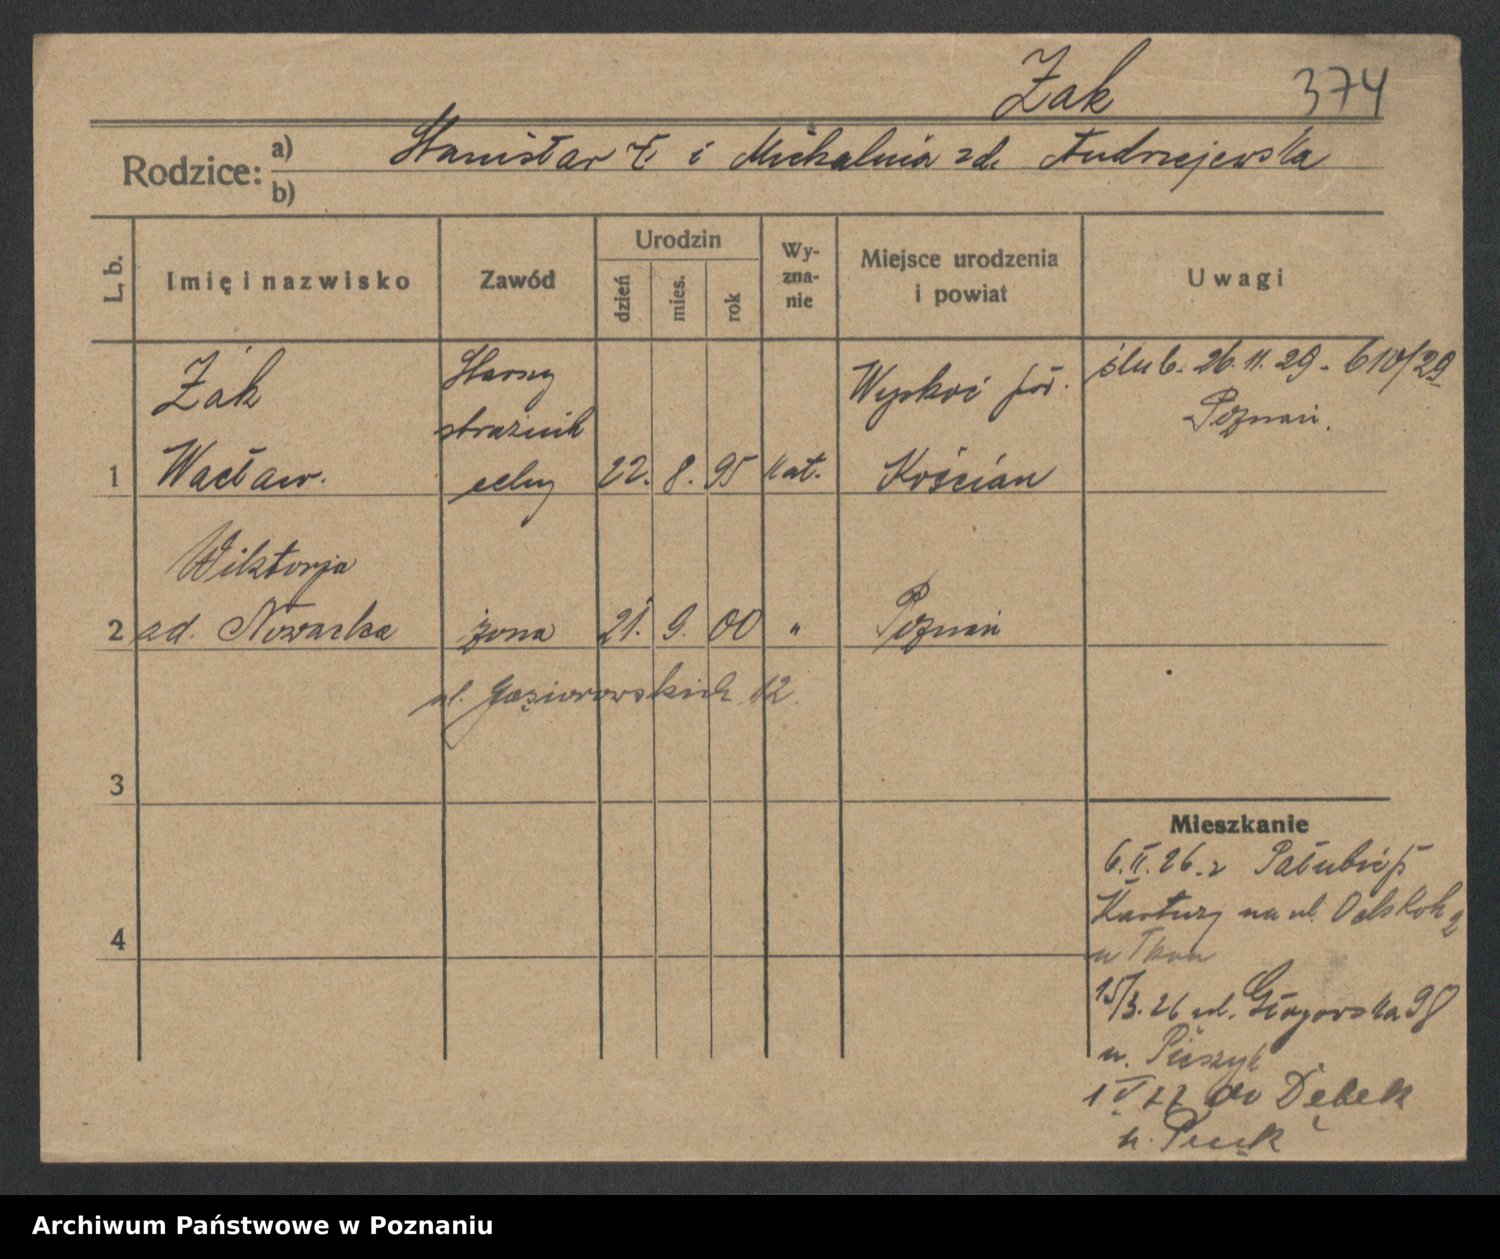 Żak 374
Rodzice: a) Stanisław Ż. i Michalina zd. Andrzejewska
b)
L. b. Imię i nazwisko Zawód Urodzin dzień mies. rok Wy-zna-nie Miejsce urodzenia i powiat Uwagi
Żak Starszy Wyskoć pow. ślub. 26.11.29. 610/29
strażnik Poznań.
1 Wacław. celny 22. 8. 95 kat. Kościan
Wiktorja
2 zd. Nowacka żona 21. 9. 00 " Poznań
ul. Gąsiorowskich 12
3
Mieszkanie
6.II.26. z Pałubic p.
Kartuzy na ul.
4
15/3.26 ul. Głogowska 98
u.
1 V 27 do Dębek
p. Puck
Archiwum Państwowe w Poznaniu